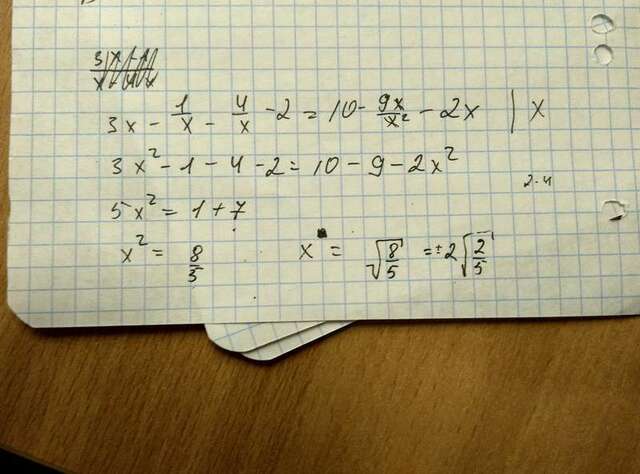 3x - 1/x - 4/x - 2 = 10 - 9x/x² - 2x | x
3x² - 1 - 4 - 2 = 10 - 9 - 2x²
2·4
5x² = 1 + 7
x² = 8/5 x = √8/5 = ±2√2/5